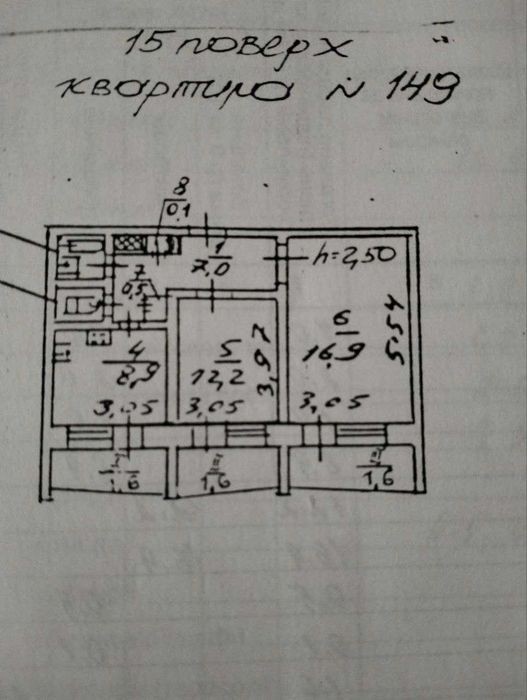 15 поверх
квартира № 149
8
0,1
1
7,0
h=2,50
7
0,5
6
16,9
5,54
4
8,9
5
12,2
3,97
3,05
3,05
3,05
1,6
III
1,6
1,6